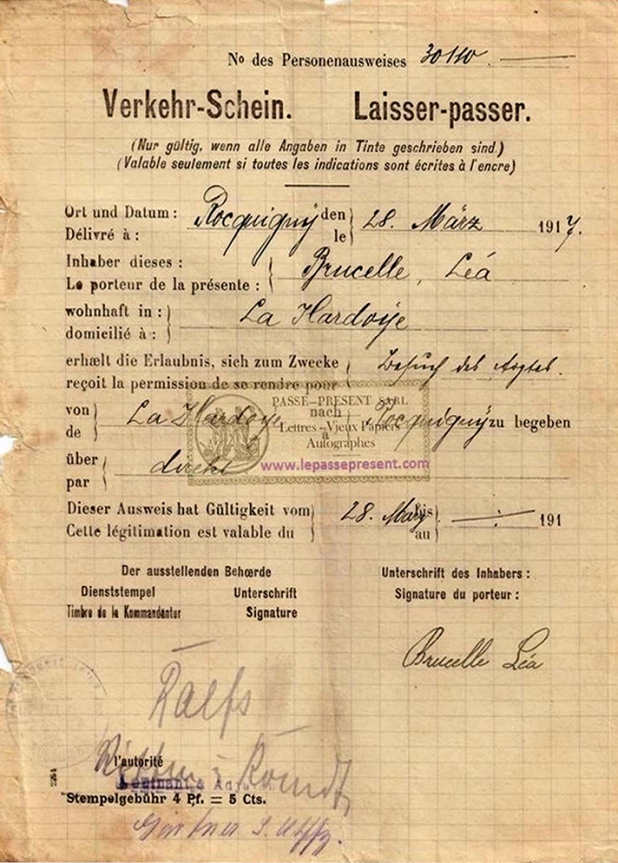 No des Personenausweises 30110.
Verkehr-Schein. Laisser-passer.
(Nur gültig, wenn alle Angaben in Tinte geschrieben sind.)
(Valable seulement si toutes les indications sont écrites à l'encre)
Ort und Datum : Rocquigny den 28. März 1917.
Délivré à : le
Inhaber dieses : Brucelle, Léa
Le porteur de la présente :
wohnhaft in : La Hardoÿe
domicilié à :
erhælt die Erlaubnis, sich zum Zwecke Besuch des Arztes.
reçoit la permission de se rendre pour
PASSE-PRESENT SARL
von La Hardoye nach Rocquigny zu begeben
de à
Lettres - Vieux Papiers
Autographes
www.lepassepresent.com
über direkt
par
Dieser Ausweis hat Gültigkeit vom 28. März bis 191
Cette légitimation est valable du au
Der ausstellenden Behœrde Unterschrift des Inhabers :
Dienststempel Unterschrift Signature du porteur :
Timbre de la Kommandantur Signature
Brucelle Léa
Ralfs
l'autorité
Stempelgebühr 4 Pf. = 5 Cts.